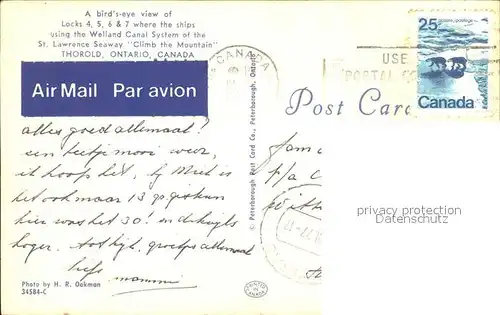 A bird's-eye view of
Locks 4, 5, 6 & 7 where the ships
using the Welland Canal System of the
St. Lawrence Seaway "Climb the Mountain"
THOROLD, ONTARIO, CANADA
Air Mail Par avion
alles goed allemaal?
een beetje mooi weer,
ik hoop het, bij
is het ook maar 13 gr.
hier was het 30!
hoger. tot kijk, groetjes allemaal
liefs
mammie
Photo by H. R. Oakman
34584-C
© Peterborough Post Card Co., Peterborough, Ontario
PRINTED IN CANADA
CANADA
USE
POSTAL CO
Post Card
25
postes postage
Canada
p/a
privacy protection
Datenschutz